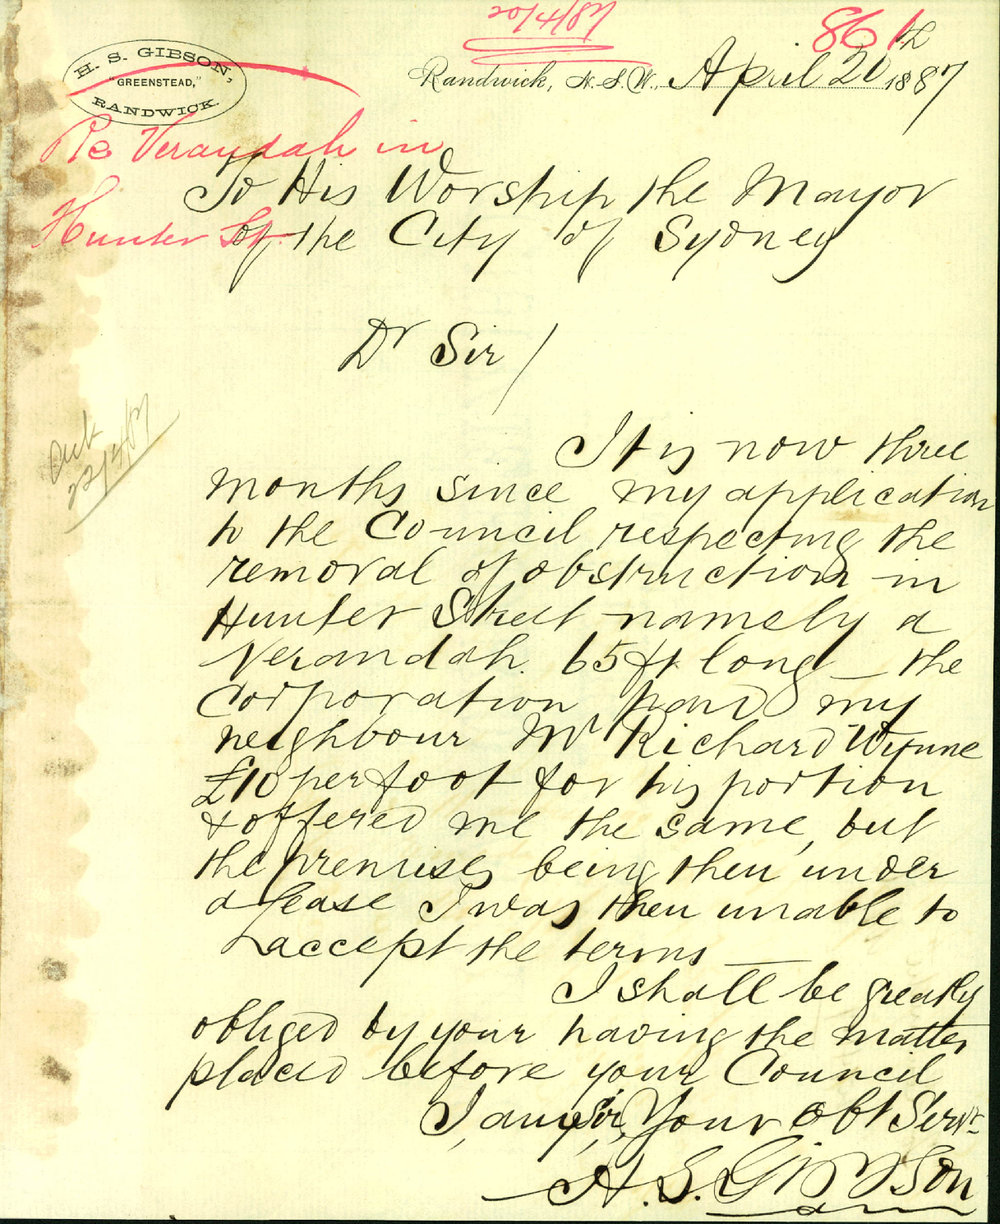 20/4/87
861
H. S. GIBSON,
"GREENSTEAD,"
RANDWICK.
Randwick, N.S.W., April 20th 1887
Re Verandah in
Hunter St.
To His Worship the Mayor
of the City of Sydney
Dr Sir /
22/4/87
It is now three
months since my application
to the Council respecting the
removal of obstruction in
Hunter Street namely a
Verandah 65 ft long — the
Corporation paid my
neighbour Mr Richard Wynne
£10 per foot for his portion
& offered me the same, but
the premises being then under
a lease I was then unable to
accept the terms —
I shall be greatly
obliged by your having the matter
placed before your Council
I am, Sir, Your Obt Servt
H. S. Gibson